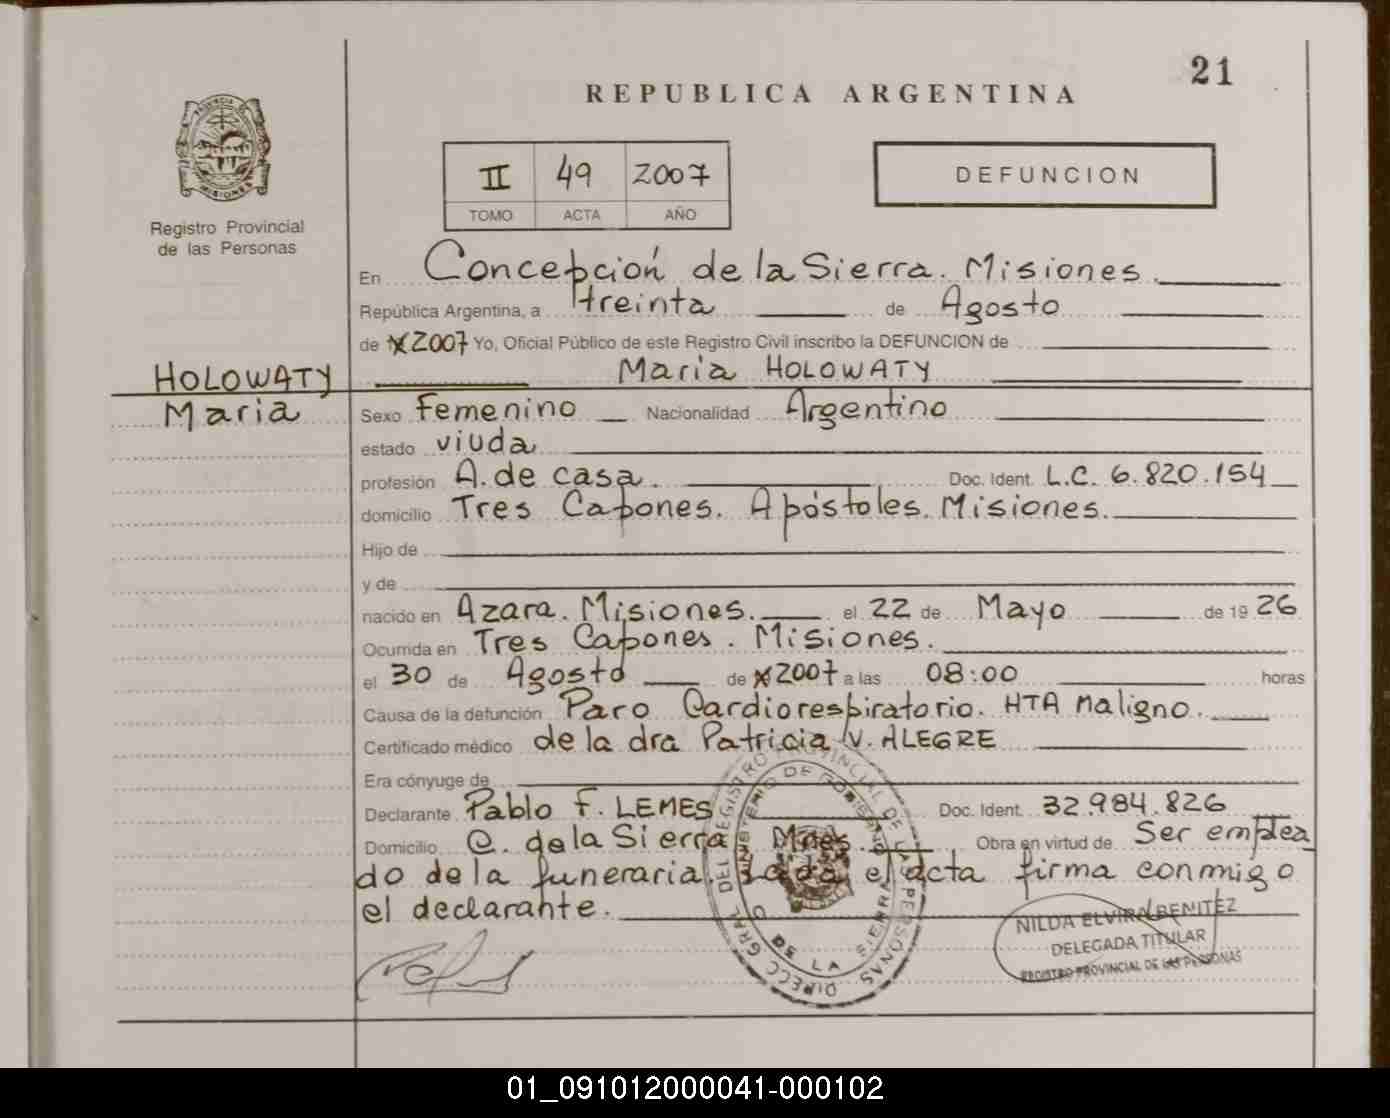 21
REPUBLICA ARGENTINA
PROVINCIA DE MISIONES
Registro Provincial
de las Personas
II 49 2007
TOMO ACTA AÑO
DEFUNCION
En Concepción de la Sierra. Misiones.
República Argentina, a treinta de Agosto
de 2007 Yo, Oficial Público de este Registro Civil inscribo la DEFUNCION de
Maria HOLOWATY
HOLOWATY
Maria
Sexo Femenino Nacionalidad Argentino
estado viuda
profesión A. de casa. Doc. Ident. L.C. 6.820.154
domicilio Tres Capones. Apóstoles. Misiones.
Hijo de
y de
nacido en Azara. Misiones. el 22 de Mayo de 19 26
Ocurrida en Tres Capones. Misiones.
el 30 de Agosto de 2007 a las 08:00 horas
Causa de la defunción Paro Cardiorespiratorio. HTA Maligno.
Certificado médico de la dra Patricia V. ALEGRE
Era cónyuge de
Declarante Pablo F. LEMES Doc. Ident. 32.984.826
Domicilio C. de la Sierra Mnes. Obra en virtud de Ser emplea
do de la funeraria. Leida el acta firma conmigo
el declarante.
DIRECC GRAL DEL REGISTRO PROVINCIAL DE LAS PERSONAS
MINISTERIO DE GOBIERNO
DE LA SIERRA
NILDA ELVIRA BENITEZ
DELEGADA TITULAR
REGISTRO PROVINCIAL DE LAS PERSONAS
01_091012000041-000102